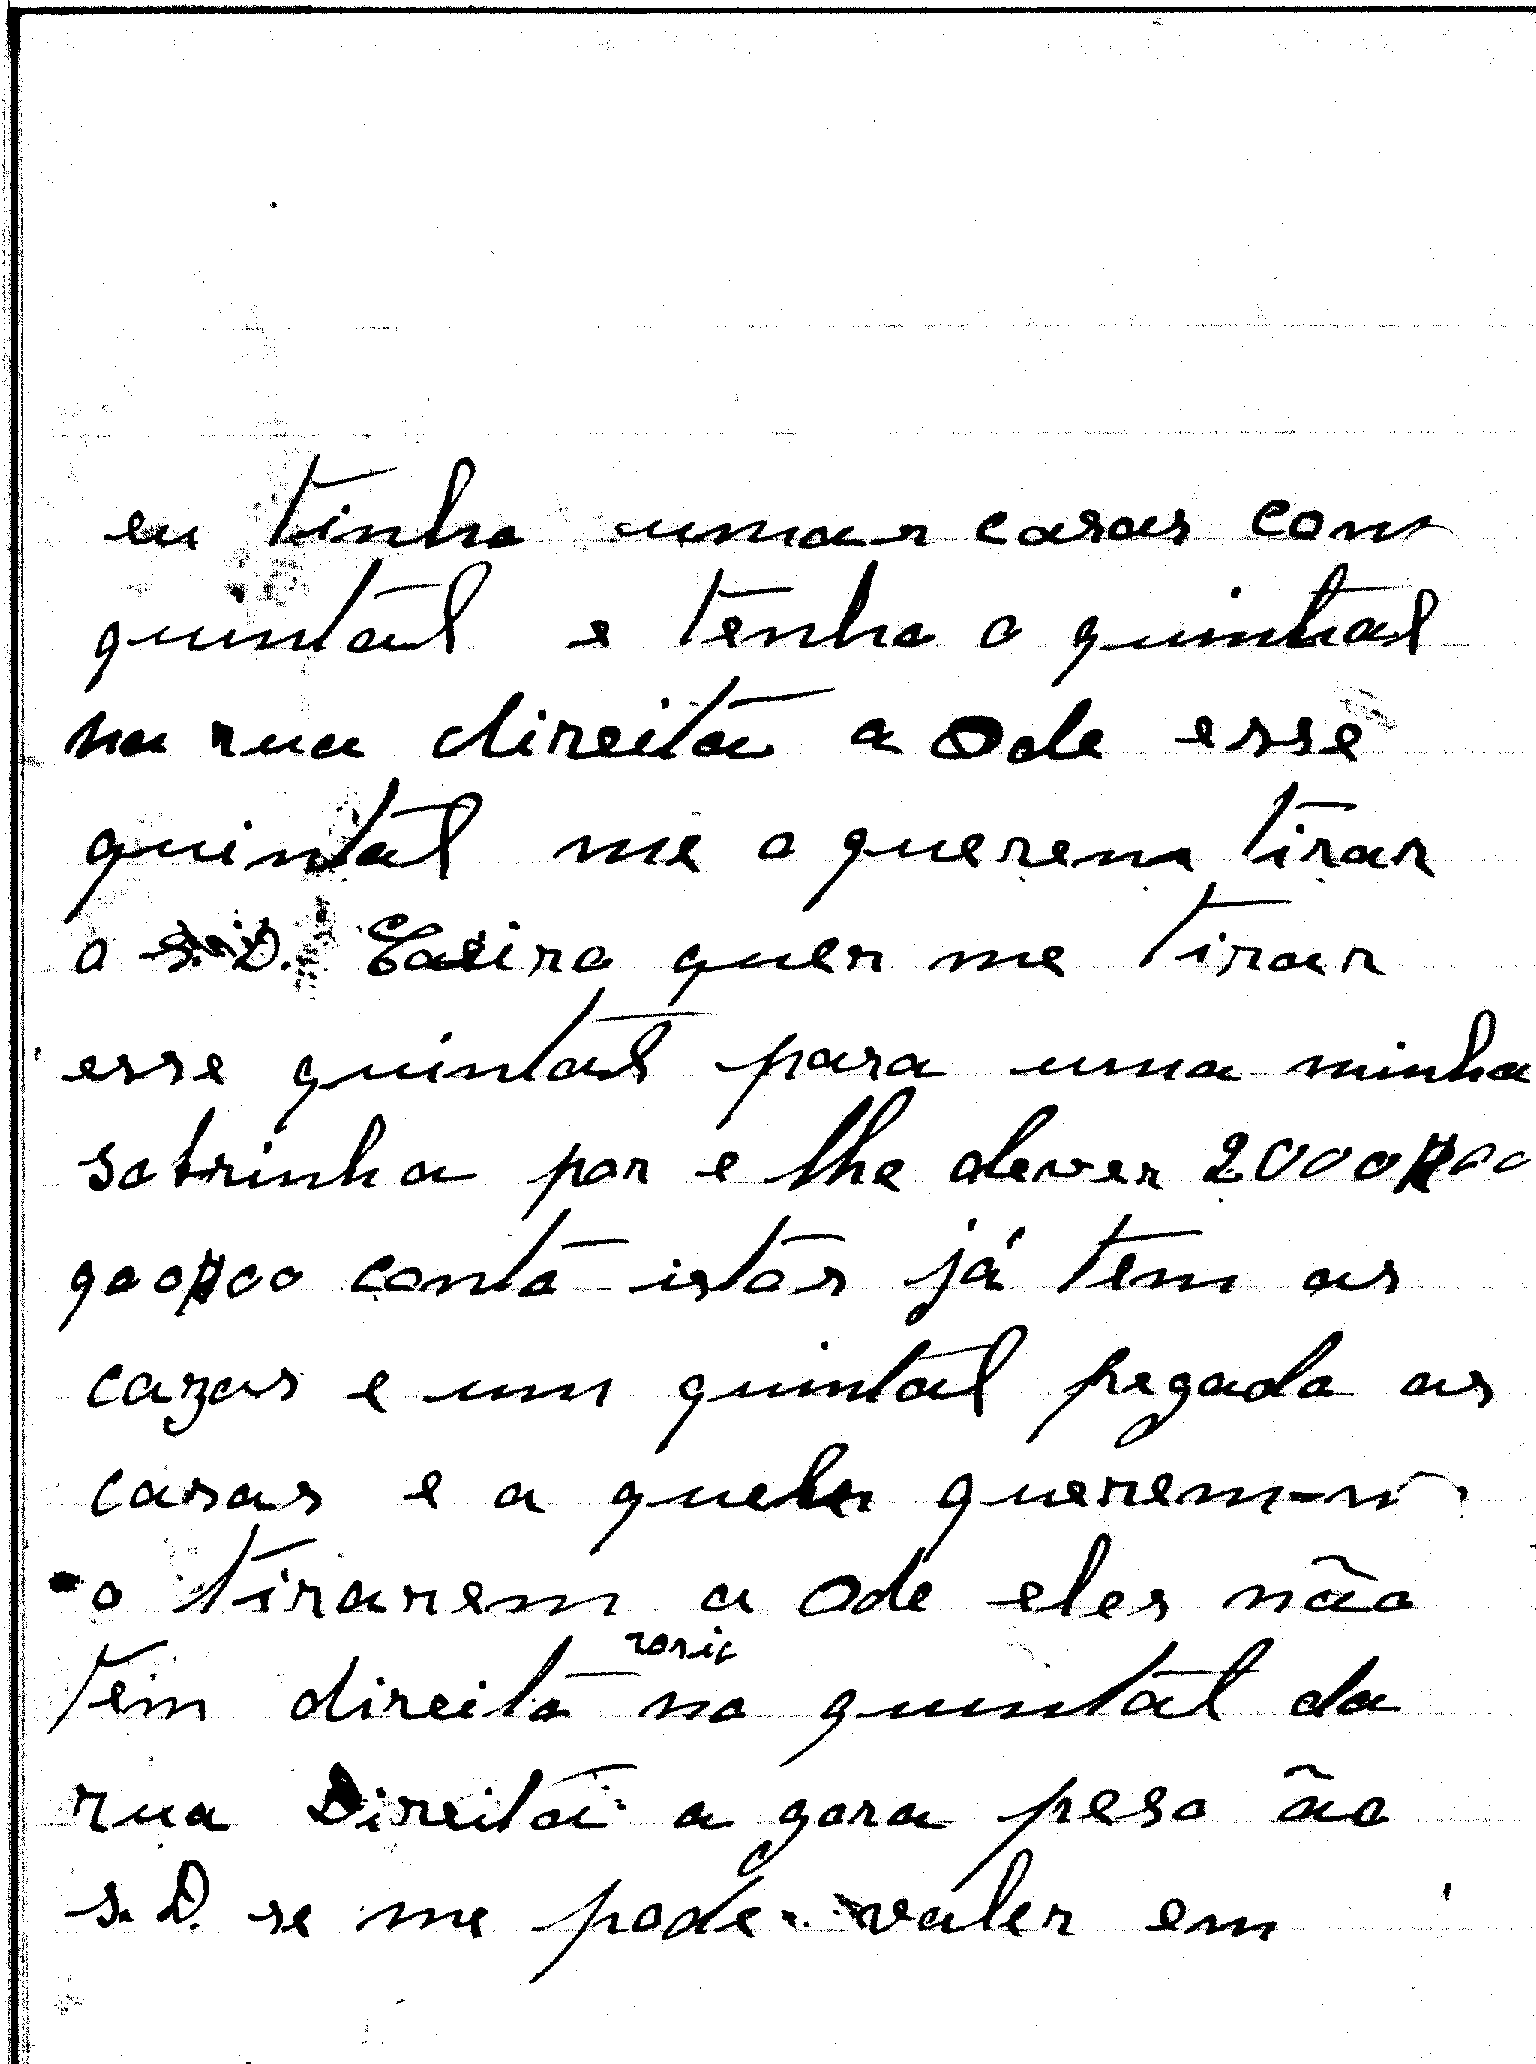 eu tinha umas casas com
quintal e tenho o quintal
na rua direita a Ode esse
quintal me o querem tirar
o S. D. quer me tirar
esse quintal para uma minha
sobrinha por e lhe dever 2000$00
900$00 conto istos já tem as
cazas e um quintal pegado as
casas e a quele querem-n
o tirarem a Ode eles não
tem direito no quintal da
rua Direita a gora peso ão
S. D. se me pode valer em